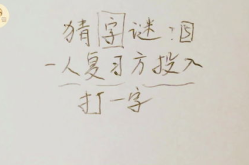 猜字谜:5
一人复习方投入
打一字